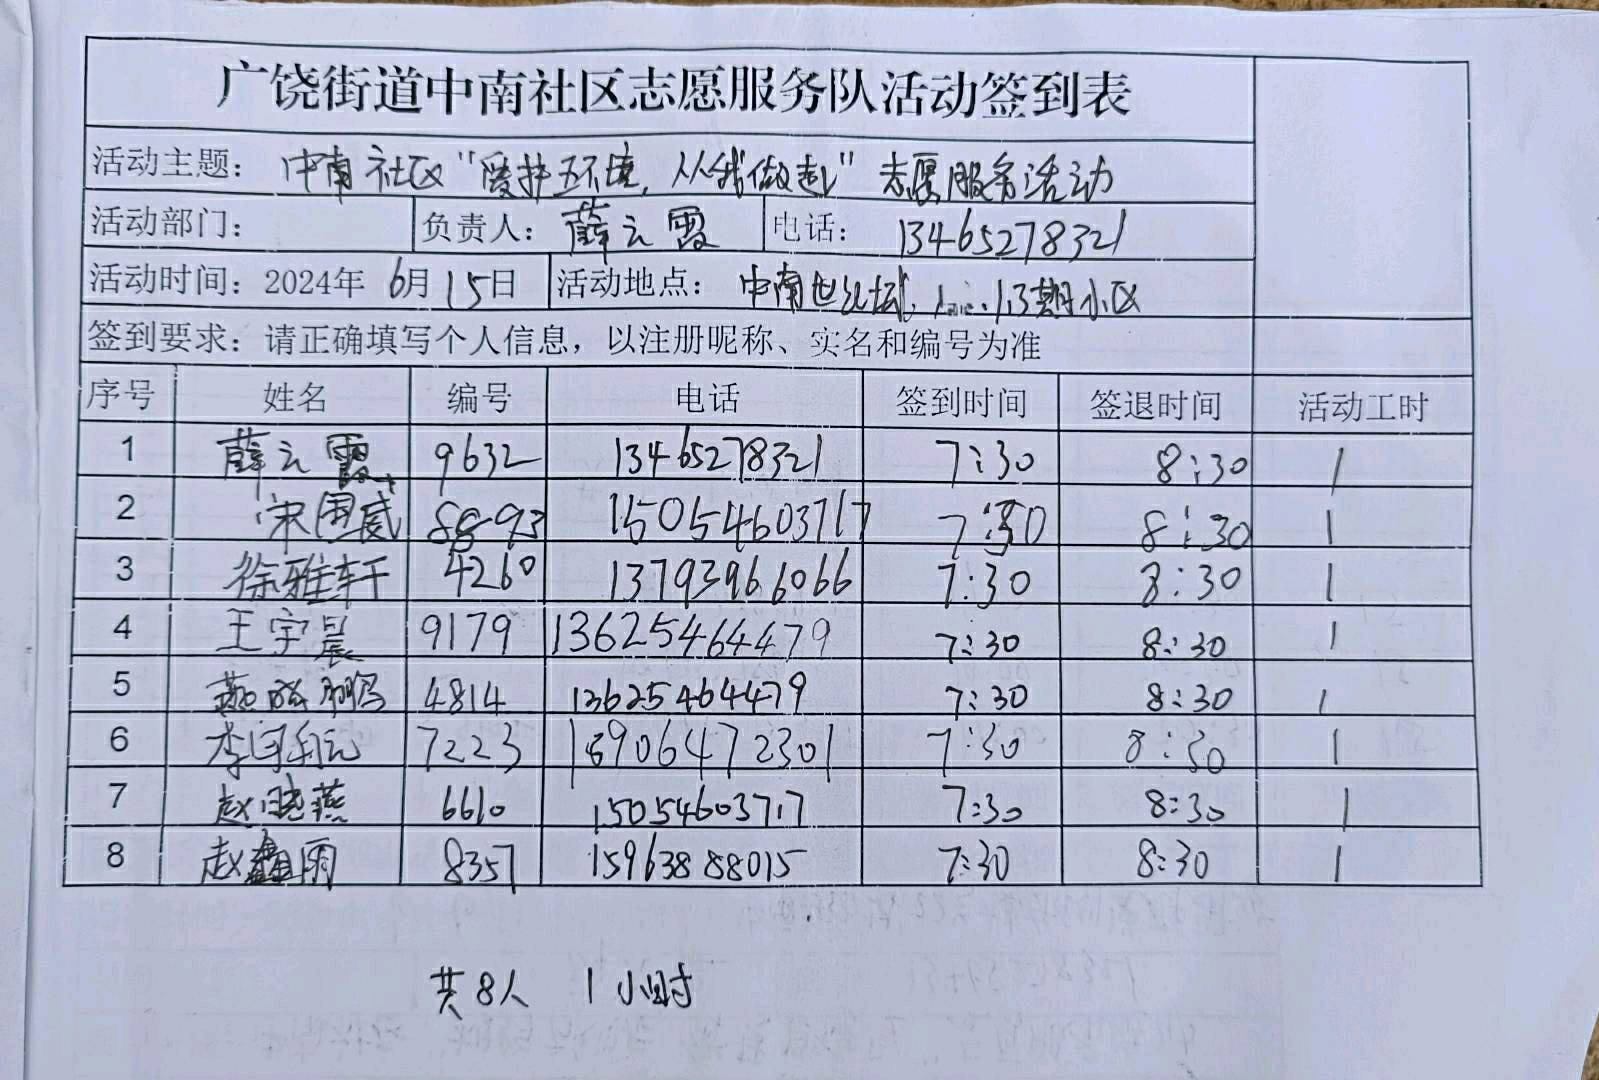 广饶街道中南社区志愿服务队活动签到表
活动主题： 中南社区“爱护环境，从我做起”志愿服务活动
活动部门： 负责人：薛云霞 电话： 13465278321
活动时间：2024年 6月15日 活动地点： 中南世纪城 1.3期小区
签到要求：请正确填写个人信息，以注册昵称、实名和编号为准
序号 姓名 编号 电话 签到时间 签退时间 活动工时
1 薛云霞 9632 13465278321 7:30 8:30 1
2 宋国威 8893 15054603717 7:30 8:30 1
3 徐雅轩 4260 13793966066 7:30 8:30 1
4 王宇晨 9179 13625464479 7:30 8:30 1
5 4814 13625464479 7:30 8:30 1
6 李 7223 15906472301 7:30 8:30 1
7 赵晓燕 6610 15054603717 7:30 8:30 1
8 赵鑫雨 8357 15963888015 7:30 8:30 1
共8人 1小时